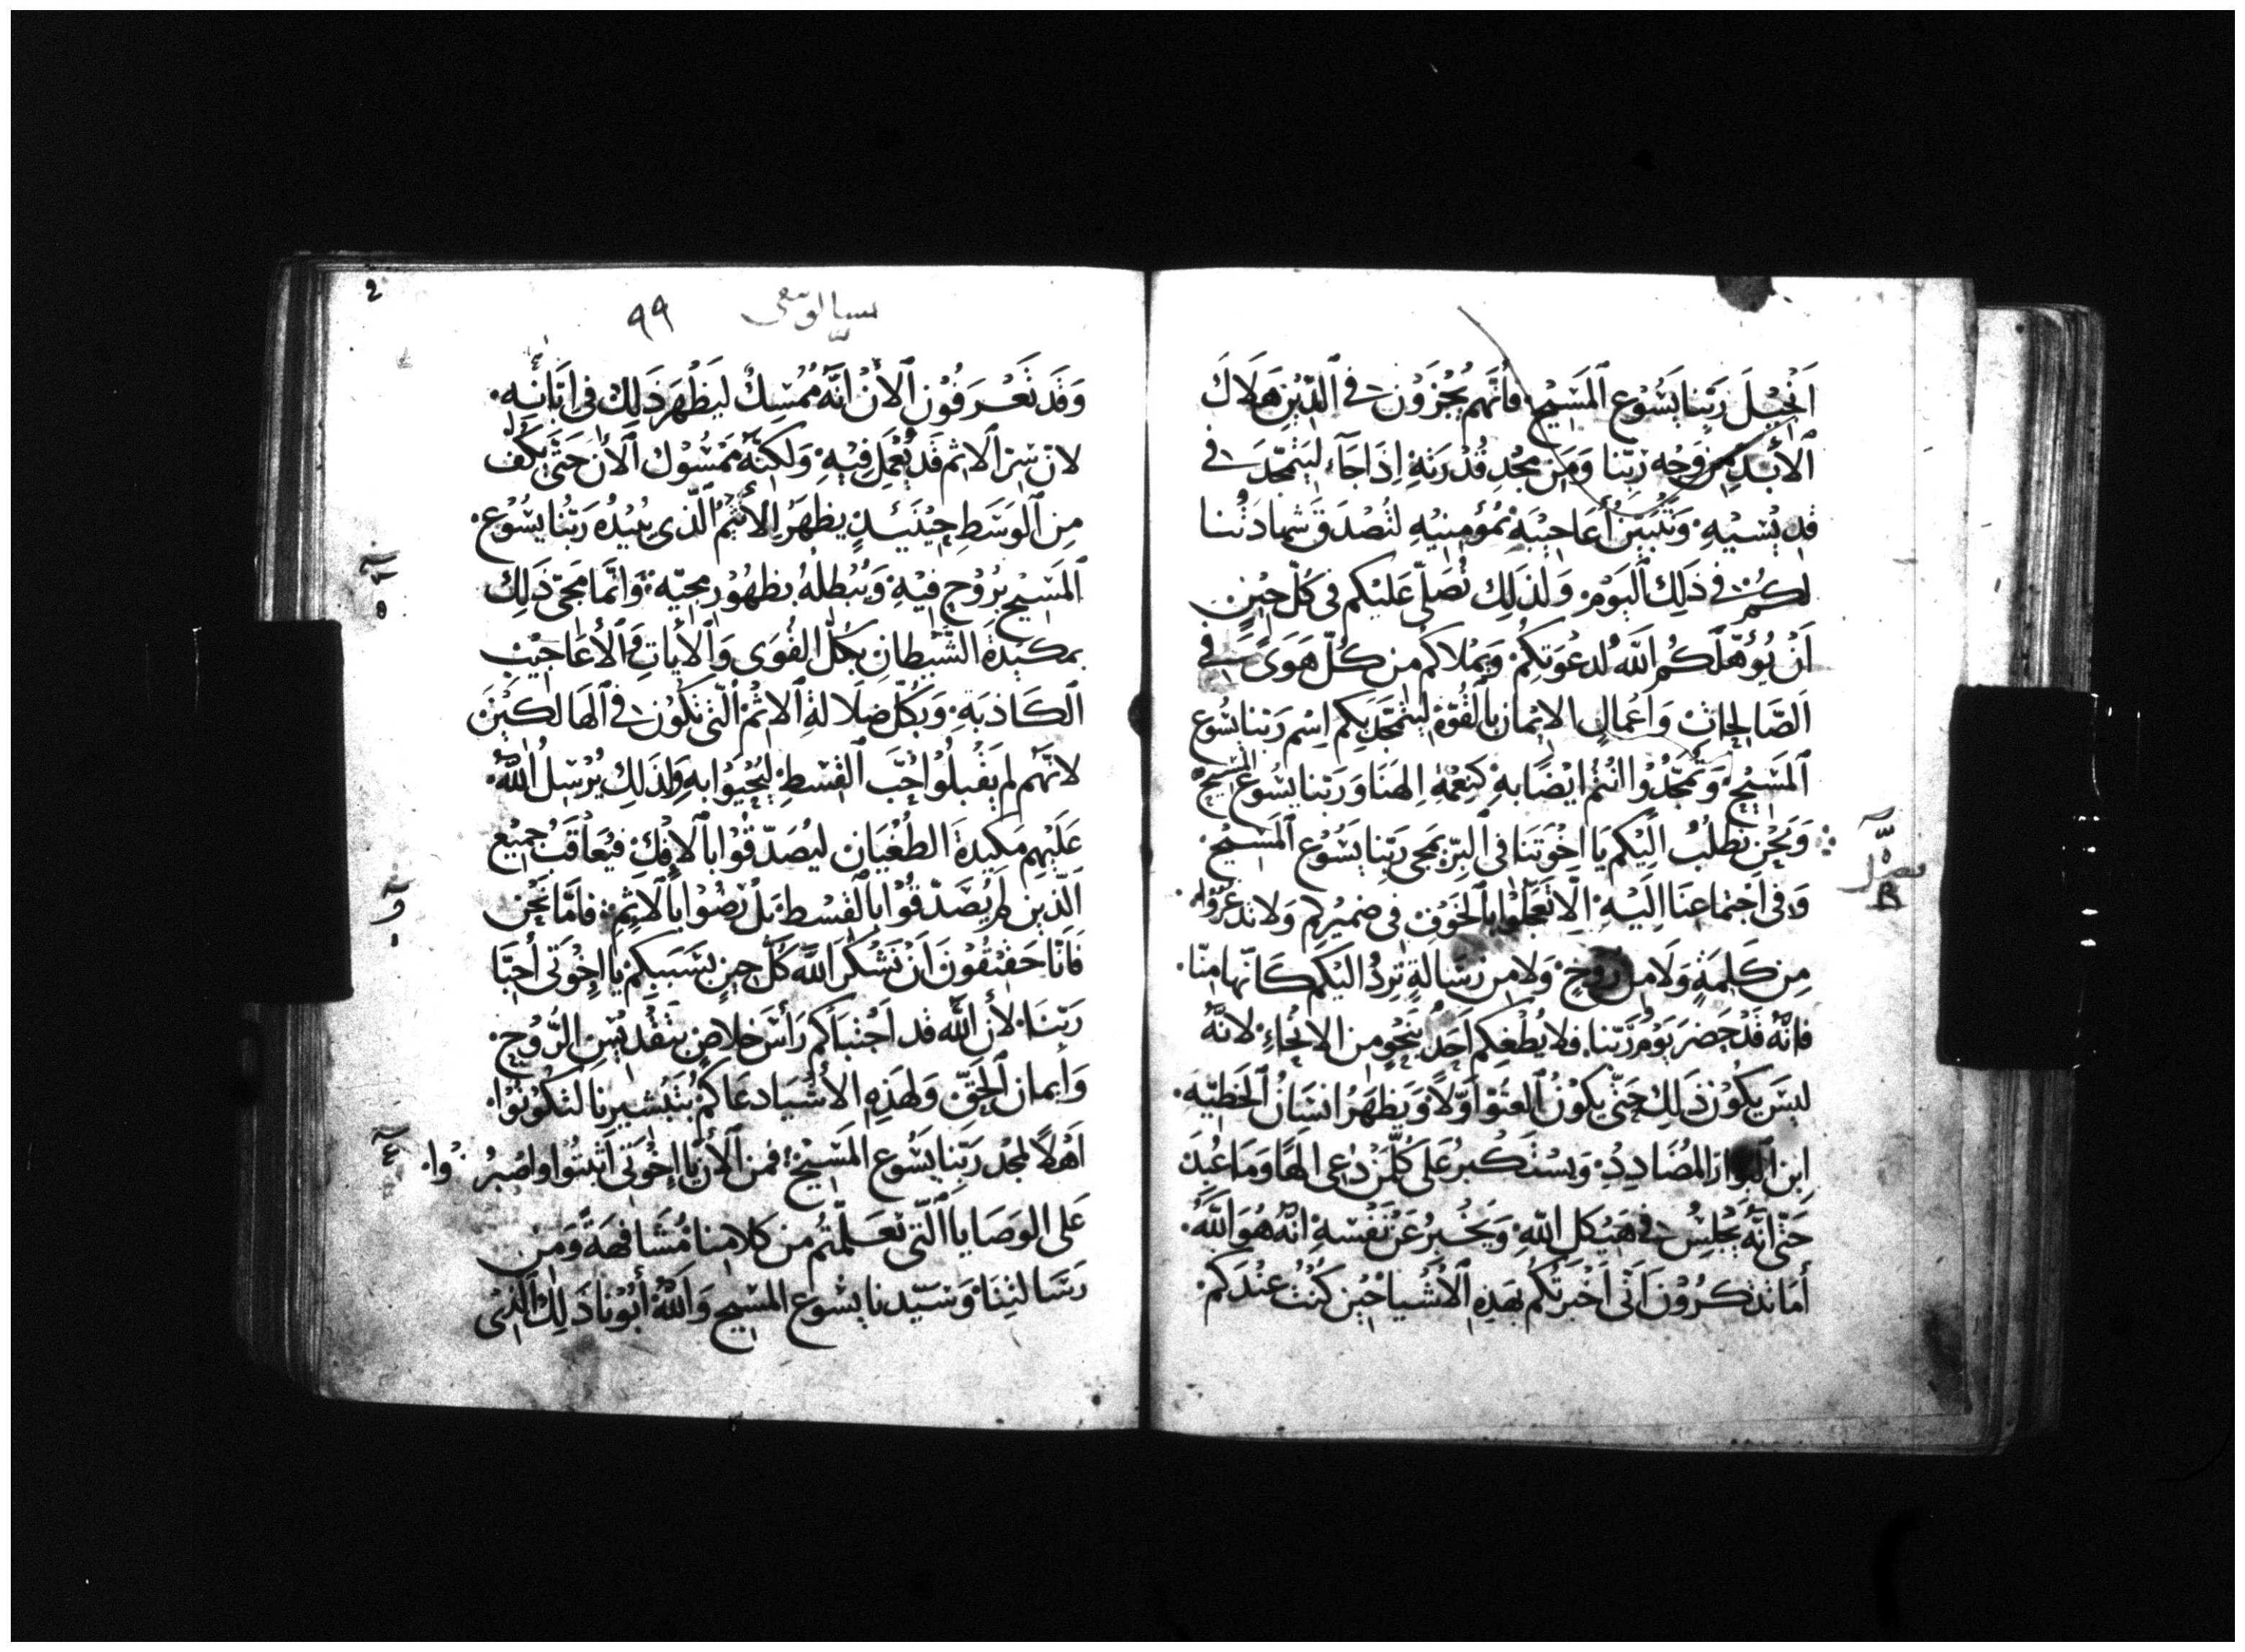 اَنْجِيْلَ رَبِّنا يَسُوْع اَلمَسَيْح. فأنَّهم يُجْزَوْن في الدَّيْنِ هَلَاكَ
اَلأَبَدِ مِن وَجْه رَبّنا وَمَن مجْدِ قُدْرَتِهِ اِذَا جَآءَ ليَتمجَّدَ في
قدِيْسيْهِ. وَتُبَيّنُ أعَاجيْبَهُ بمُؤمِنيْهِ لتُصْدَقَ شهادَتُنا
لكُم في ذَلِكَ اليَوْمِ. وَلذلِك نُصَلّى عَليْكم في كلّ حِيْنٍ
اَنْ يُؤَهّلَكُم اللّهُ لدعْوَتِكُمْ. وَيمْلاكم من كلّ هَوىً في
اَلصَّالِحاتْ وَاعْمالِ الايْمان بالقُوّة ليَتمَجَّدَ بكم اِسْم رَبّنا يسُوع
اَلمَسَيْح. وَتمَجَّدُوْا انْتُمْ ايْضًا بهِ كنِعْمةِ اِلهنَا وَرَبّنا يسُوع المسيح
وَنحْن نَطلُبُ اليْكم يَا اخْوَتنَا في البِرّ بمَجى رَبّنِا يَسُوْع اَلمَسَيْح.
وَفى اجْتماعِنَا اليْهِ. الّا تَعْجَلُوْا بالخَوْف فى ضميْركم وَلا تدعَرُوْا.
مِن كَلِمَةٍ وَلَا من رُوْحٍ. وَلا من رسَالةٍ تردُ اليْكم كَانّها منّا.
فانّهُ قَدْ حَضرَ يَوْمُ رَبّنا. فلا يُطْغيَكم اَحَدٌ بنَحْوٍ من الانْحاءِ. لانّهُ
ليسَ يكُوْن ذَلِك حَتّى يكُوْنُ العُتُوّ اوّلاً وَيَظهَرُ انسَانُ اَلخَطيّه.
اِبن اَلبَوَار المُضَادِدِ. وَيسْتَكْبرُ عَلى كلّ مَنْ دُعى الهًا وَمَا عُبِدَ
حَتّى انّهُ يَجْلِسُ في هَيْكلِ اللّهِ. وَيخْبرُ عَنْ نَفْسهِ انّهُ هُوَ اَللّهُ.
أمَا تذكُرُوْن اَنّى اَخْبَرتُكُم بهَذِهِ الأشْيا حِيْن كُنْتُ عنْدَكمْ.
رساله
B
2
٩٩
وَقَد تَعْرفُوْن اَلأنْ انّهُ مُمْسِكٌ ليَظْهَرَ ذَلِكَ فى ابّانِه.
لانّ سِرّ اَلاثم قَد يُعْمَل فيْهِ. وَلكِنّهُ مَمْسُوْك اَلأن حَتّى يكُفّ
مِن اَلوَسَطِ حِيْنَئِذٍ يظهَرُ الأثِيْمُ الّذى يُبيْدُهُ رَبُّنا يسُوْع.
اَلمَسَيْح برُوْحِ فيْهِ وَيُبْطلُهُ بظهُوْر مجيّه. وَانّما مَجى ذَلِك
بمكيْدَة الشَّيْطان بكُلّ القُوَى وَالأيَاتِ وَالأعَاجيْبِ
اَلكاذبَةِ. وَبكُلّ ضلَالةِ اَلاثمْ التّى تكُوْن في اَلهَالكيْنَ
لانّهم لم يَقْبلُوا حُبّ اَلقسْطِ ليَحْيَوْا به وَلذَلِك يُرْسِلُ اَللّهُ.
عَلَيْهِم مَكيْدَةَ الطُغْيَان ليُصَدّقُوْا بالافْكِ فيُعَاقَبُ جميْع
الّذين لم يُصَدّقُوْا بالقسْط. بَلْ رَضُوْا بالاثِم. فامّا نَحْن
فَانّا حَقيْقُوْنَ اَنْ نَشْكرَ اَللّهَ كُلّ حينٍ بسَبَبِكم يا اخْوَتى أحِبّا
رَبّنَا. لأن اَللّهَ قد اجْتبَاكم رَأسَ خلاصٍ بتَقْديْسِ الرُّوْح.
وَأيمان اَلحَقّ وَلهَذِهِ الأشْيَا دعَاكم بتَبْشيرنا لتكُوْنُوْا.
اَهْلاً لمجْد رَبّنا يَسُوع المَسَيْح. فمن اَلأن يا اخْوَتى اثْبتُوْا واصْبرُوا.
عَلى الوَصَايا الّتى تعَلّمتُم من كلامِنا مُشَافهَةً وَمن
رسَالتِنَا. وَسَيّدنا يسُوع المسيح وَاللّهُ أبُوْنا ذَلِك الّذى